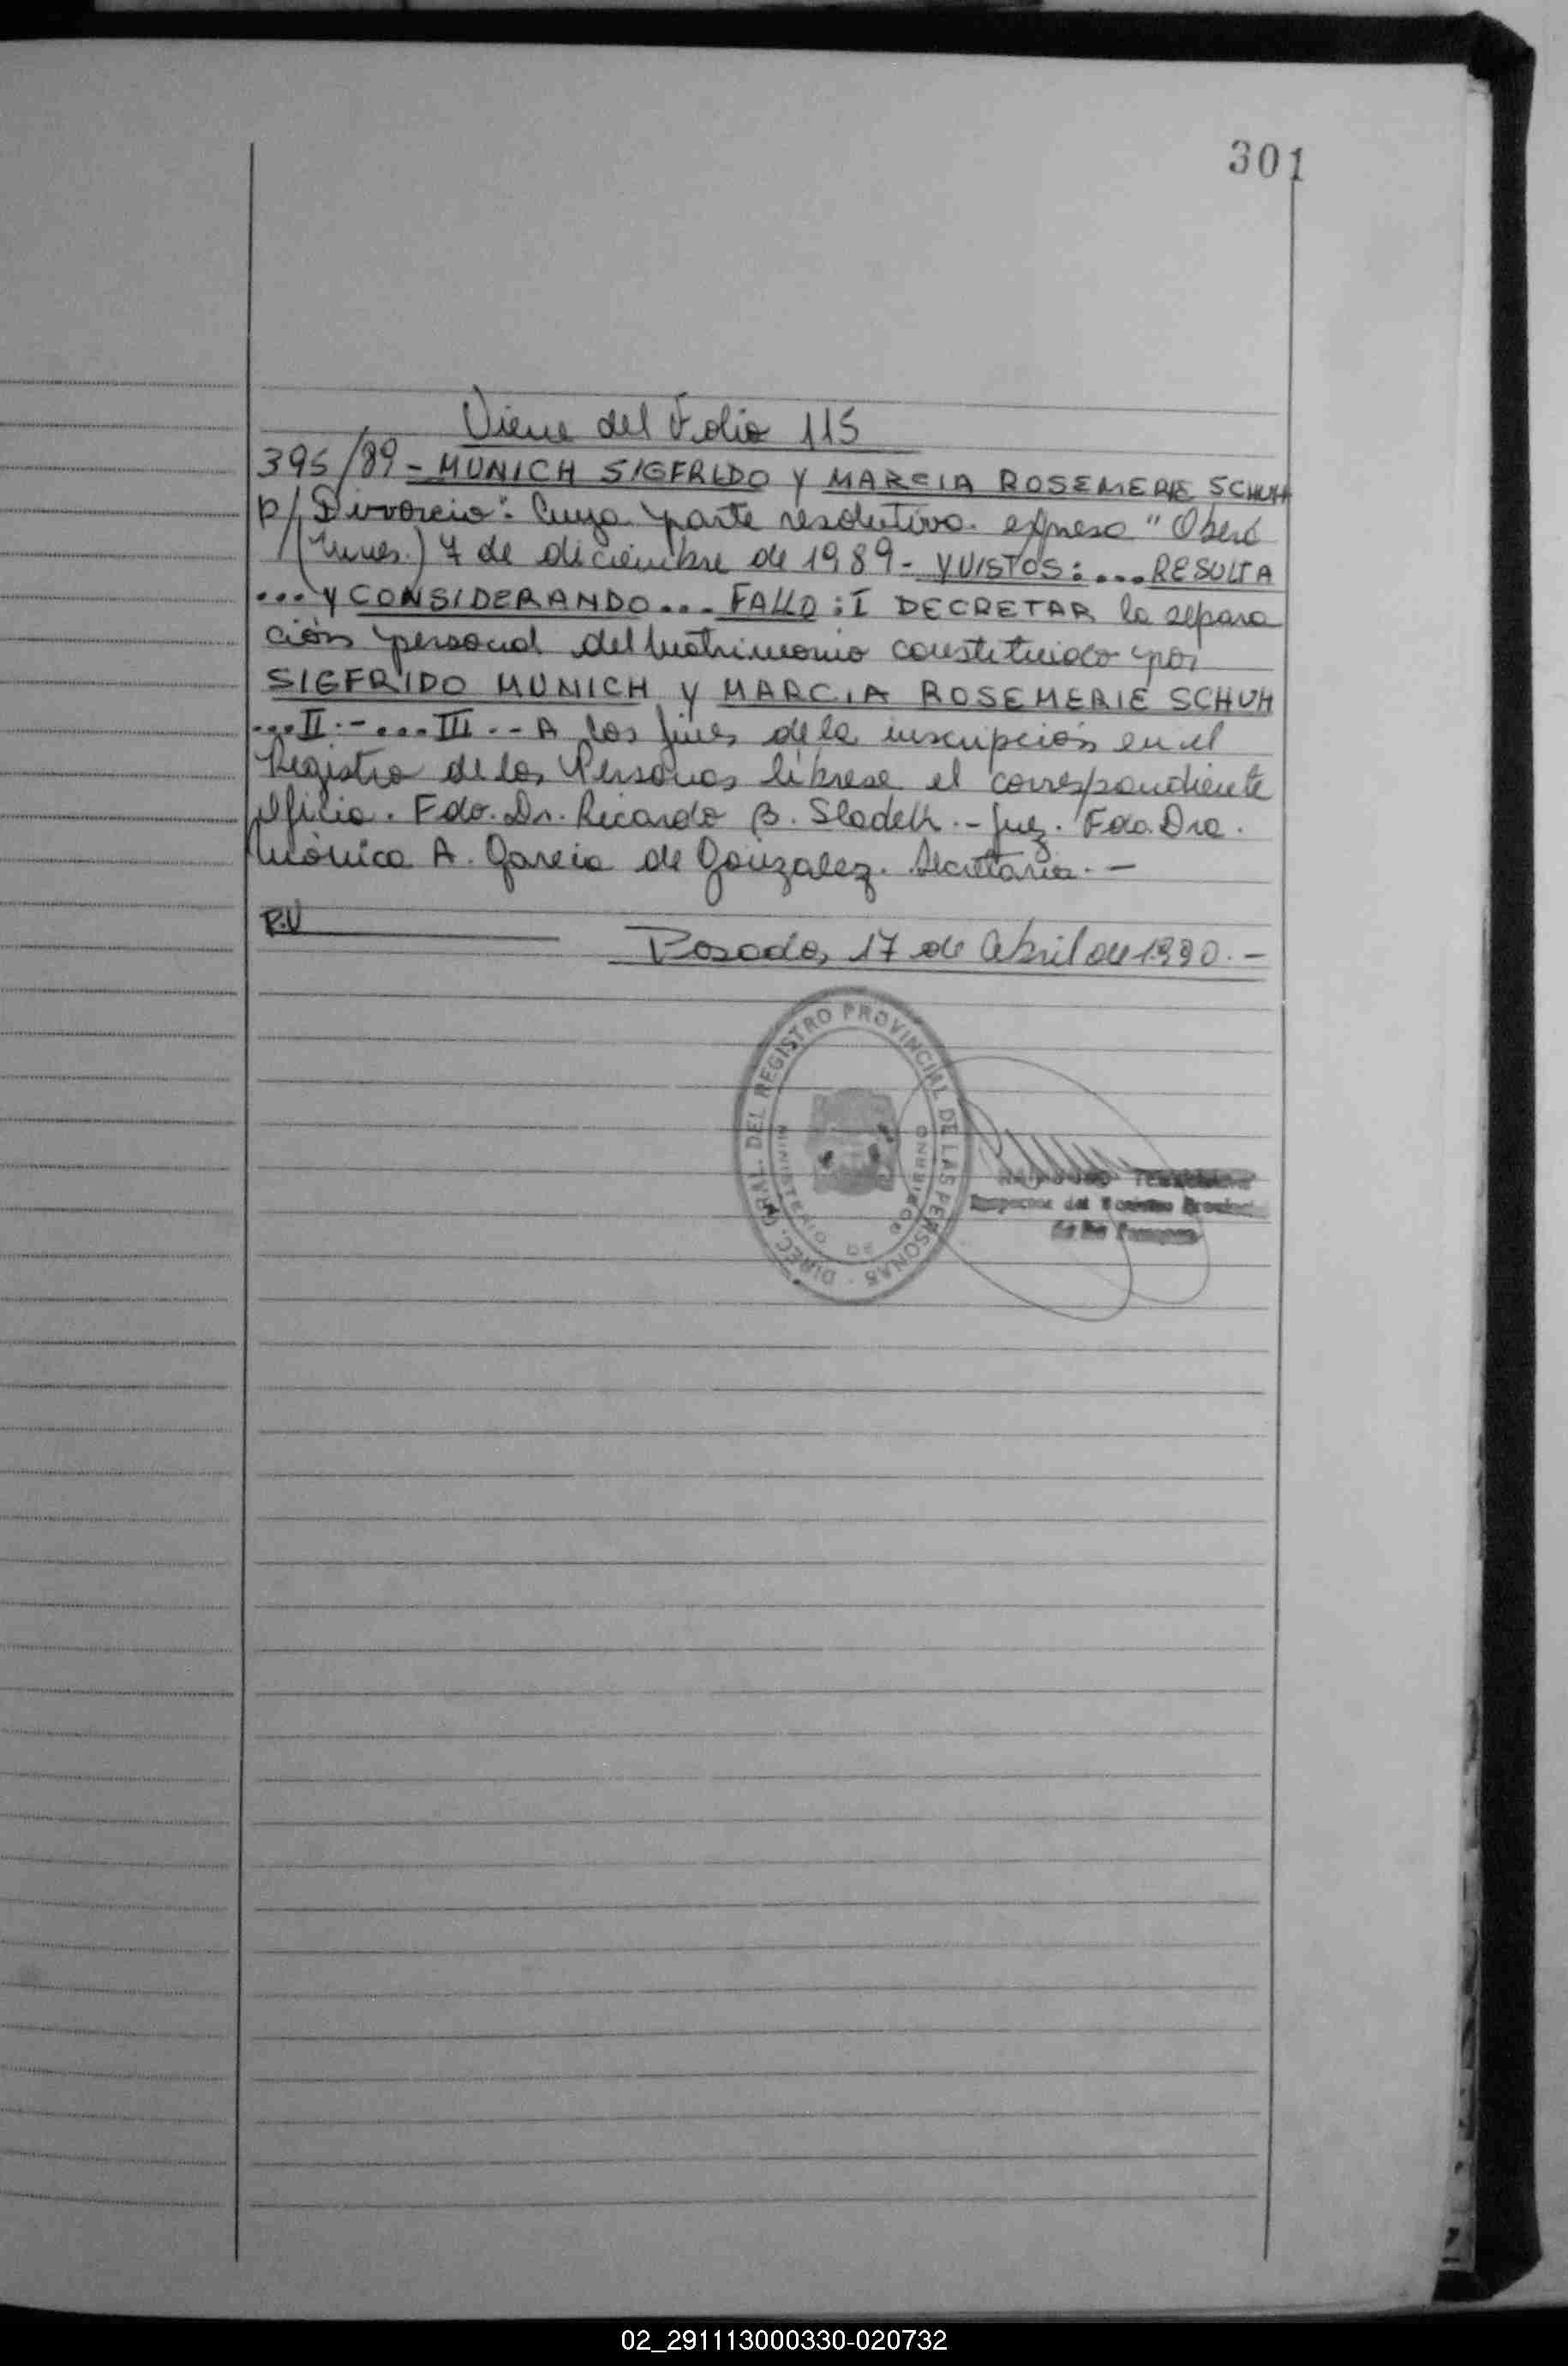 301
Viene del Folio 115
395/89 - MUNICH SIGFRIDO Y MARCIA ROSEMERIE SCHUH
p/ Divorcio": Cuya parte resolutiva expresa "Oberá
(Mnes.) 7 de diciembre de 1989 - Y VISTOS: ... RESULTA
... y CONSIDERANDO ... FALLO: I DECRETAR la separa
ción personal del matrimonio constituido por
SIGFRIDO MUNICH y MARCIA ROSEMERIE SCHUH
... II.- ... III.- A los fines de la inscripción en el
Registro de las Personas líbrese el correspondiente
oficio. Fdo. Dr. Ricardo B. - Juez. Fdo. Dra.
Mónica A. Garcia de Gonzalez. Secretaria. -
R.V
Posadas, 17 de Abril de 1990. -
DIREC. GRAL. DEL REGISTRO PROVINCIAL DE LAS PERSONAS
MINISTERIO DE GOBIERNO
02_291113000330-020732